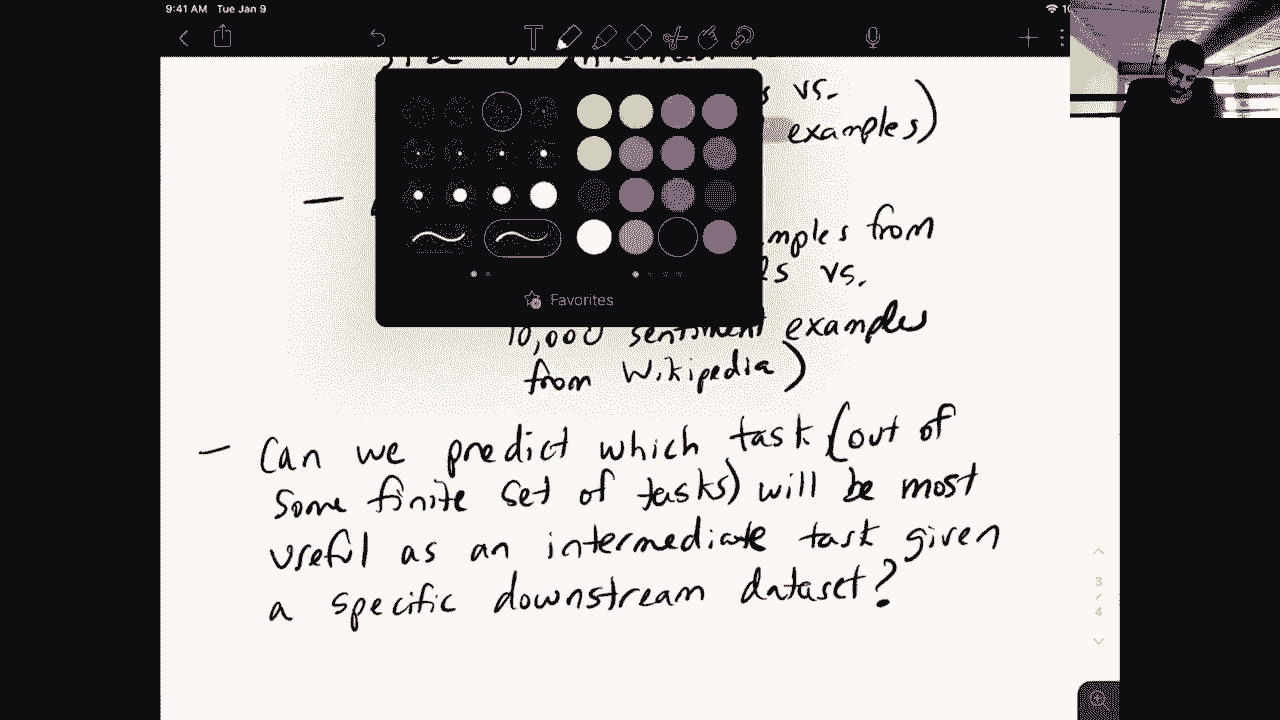 9:41 AM Tue Jan 9
vs.
examples)
from
vs.
Favorites
10,000 sentiment examples
from Wikipedia)
— Can we predict which task (out of
some finite set of tasks) will be most
useful as an intermediate task given
a specific downstream dataset?
3
4